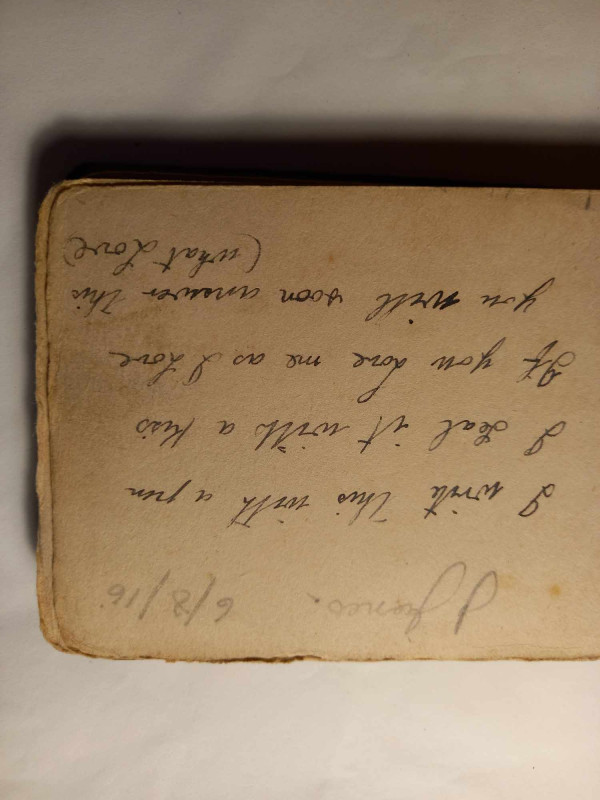 J Jones. 6/8/16
I write this with a pen
I seal it with a kiss
If you love me as I love
you will soon answer this
(what Love)